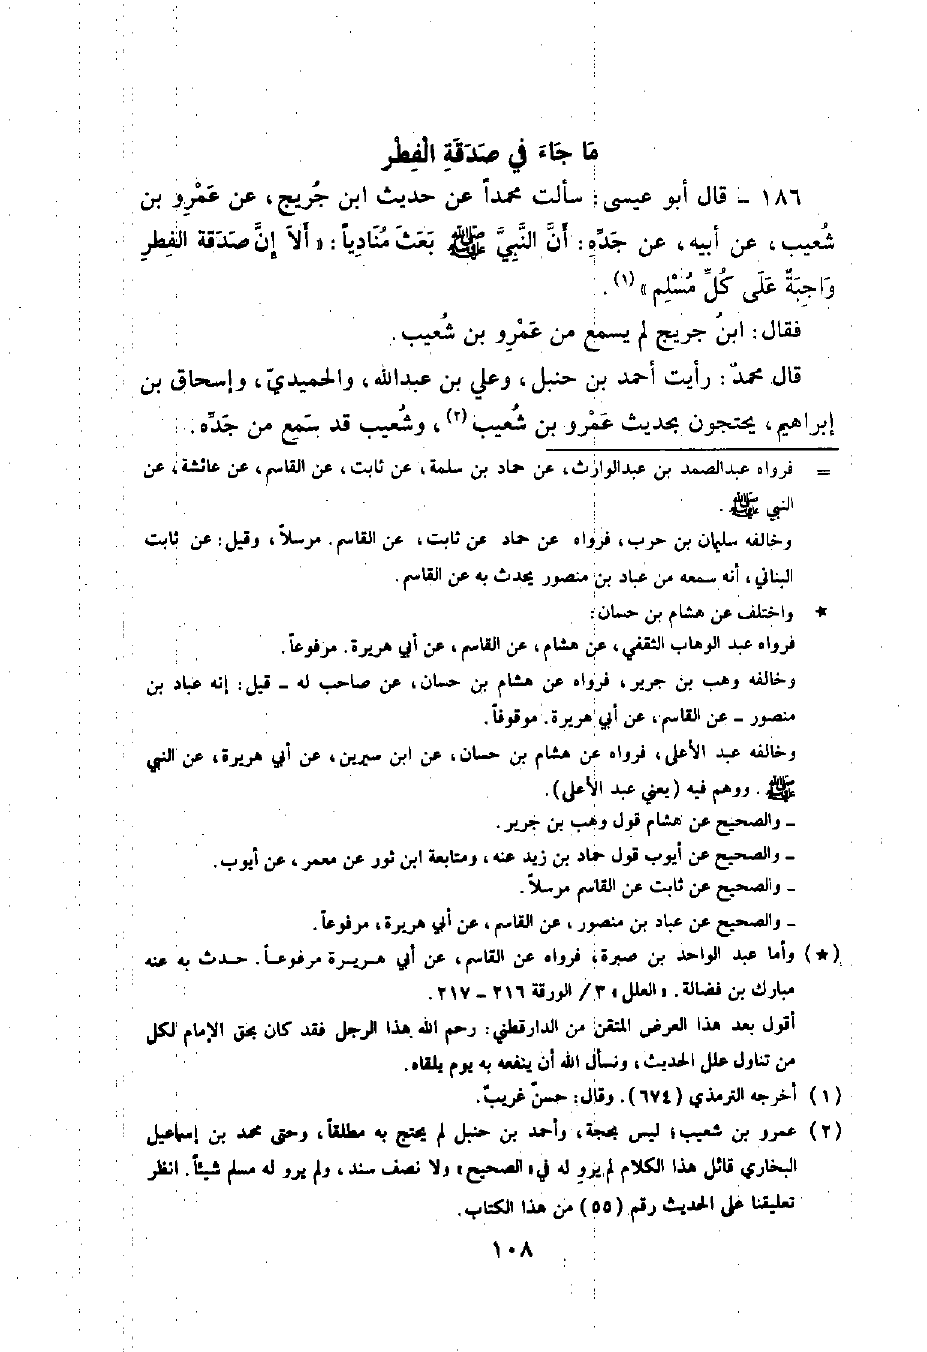 مَا جَاءَ في صَدَقَةِ الْفِطْرِ
١٨٦ ـ قال أبو عيسى: سألت محمداً عن حديث ابن جُريج، عن عَمْرِو بن
شُعيب، عن أبيه، عن جَدِّهِ: أَنَّ النَّبِيَّ ﷺ بَعَثَ مُنَادِياً: «أَلاَ إِنَّ صَدَقة الفِطرِ
وَاجِبَةٌ عَلَى كُلِّ مُسْلِمٍ»(١).
فقال: ابنُ جريج لم يسمع من عَمْرِو بن شُعيب.
قال محمدٌ: رأيت أحمد بن حنبل، وعلي بن عبدالله، والحميديّ، وإسحاق بن
إبراهيم، يحتجون بحديث عَمْرو بن شُعيب(٢)، وشُعيب قد سَمِع من جَدِّه.
= فرواه عبدالصمد بن عبدالوارث، عن حماد بن سلمة، عن ثابت، عن القاسم، عن عائشة، عن
النبي ﷺ.
وخالفه سليمان بن حرب، فرواه عن حماد عن ثابت، عن القاسم. مرسلاً، وقيل: عن ثابت
البناني، أنه سمعه من عباد بن منصور يحدث به عن القاسم.
★ واختلف عن هشام بن حسان:
فرواه عبد الوهاب الثقفي، عن هشام، عن القاسم، عن أبي هريرة. مرفوعاً.
وخالفه وهب بن جرير، فرواه عن هشام بن حسان، عن صاحب له ـ قيل: إنه عباد بن
منصور ـ عن القاسم، عن أبي هريرة. موقوفاً.
وخالفه عبد الأعلى، فرواه عن هشام بن حسان، عن ابن سيرين، عن أبي هريرة، عن النبي
ﷺ. ووهم فيه (يعني عبد الأعلى).
ـ والصحيح عن هشام قول وهب بن جرير.
ـ والصحيح عن أيوب قول حماد بن زيد عنه، ومتابعة ابن ثور عن معمر، عن أيوب.
ـ والصحيح عن ثابت عن القاسم مرسلاً.
ـ والصحيح عن عباد بن منصور، عن القاسم، عن أبي هريرة، مرفوعاً.
(★) وأما عبد الواحد بن صبرة، فرواه عن القاسم، عن أبي هريرة مرفوعاً. حدث به عنه
مبارك بن فضالة. «العلل» ٣/ الورقة ٢١٦ ـ ٢١٧.
أقول بعد هذا العرض المتقن من الدارقطني: رحم الله هذا الرجل فقد كان بحق الإمام لكل
من تناول علل الحديث، ونسأل الله أن ينفعه به يوم يلقاه.
(١) أخرجه الترمذي (٦٧٤). وقال: حسنٌ غريبٌ.
(٢) عمرو بن شعيب؛ ليس بحجة، وأحمد بن حنبل لم يحتج به مطلقاً، وحتى محمد بن إسماعيل
البخاري قائل هذا الكلام لم يروِ له في «الصحيح» ولا نصف سند، ولم يرو له مسلم شيئاً. انظر
تعليقنا على الحديث رقم (٥٥) من هذا الكتاب.
١٠٨